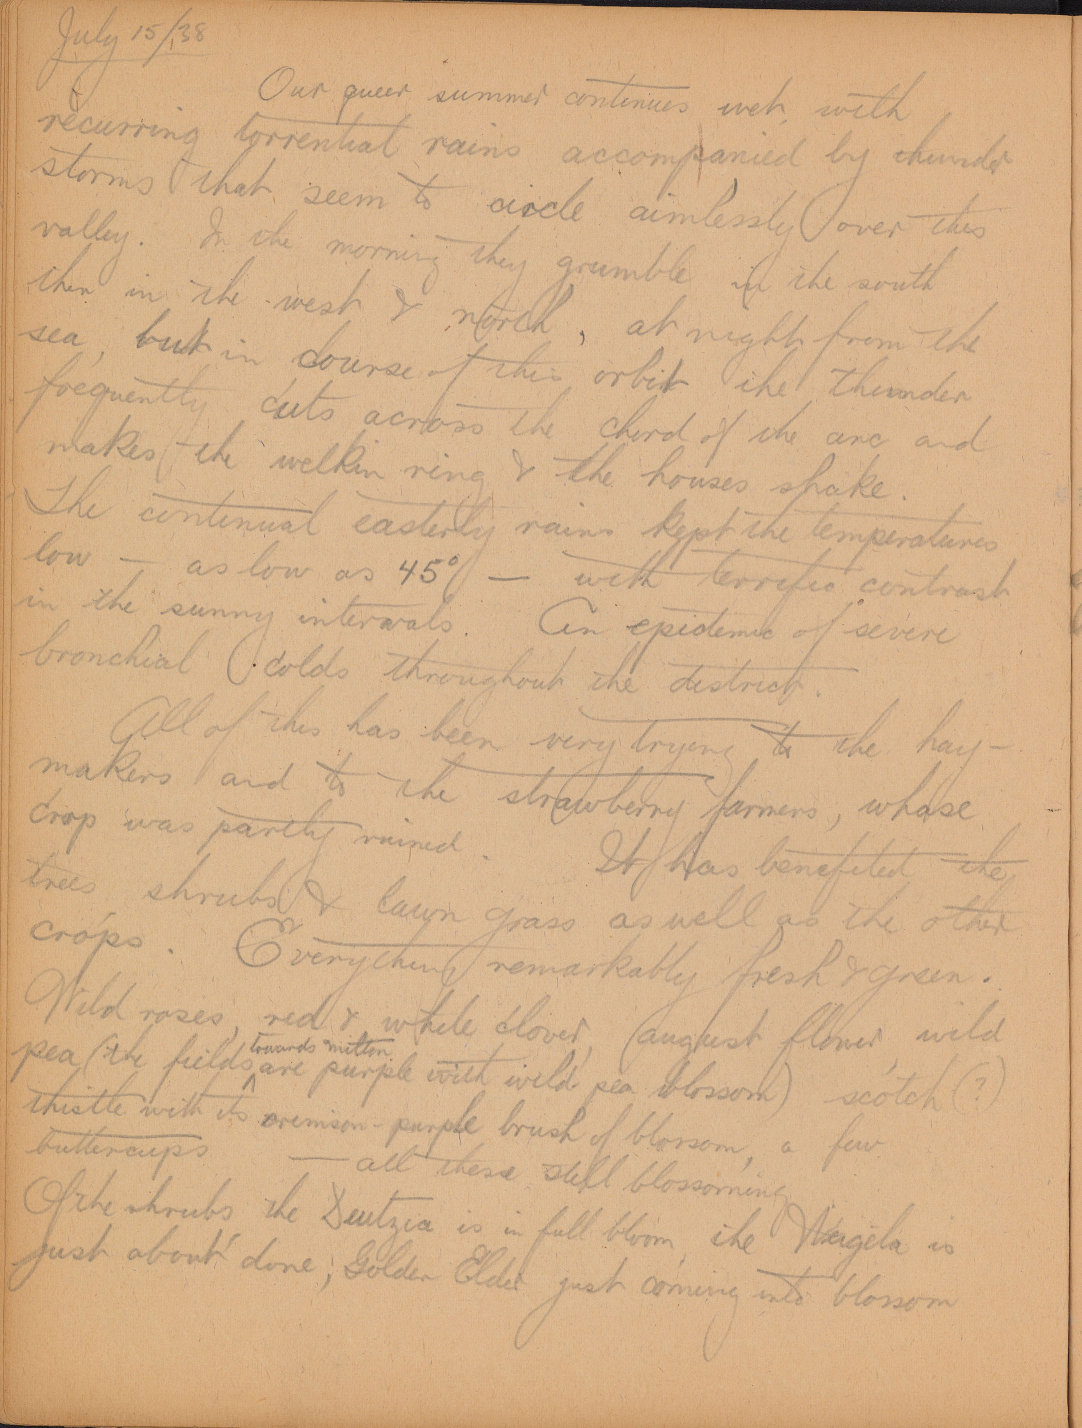 July 15/38
Our queer summer continues wet, with
recurring torrential rains accompanied by thunder
storms that seem to circle aimlessly over this
valley. In the morning they grumble in the south
then in the west & north, at night from the
sea, but in course of this orbit the thunder
frequently cuts across the chord of the arc and
makes the welkin ring & the houses shake.
The continual easterly rains kept the temperatures
low — as low as 45° — with terrific contrast
in the sunny intervals. An epidemic of severe
bronchial colds throughout the district.
All of this has been very trying to the hay-
makers and to the strawberry farmers, whose
crop was partly ruined. It has benefited the
trees shrubs & lawn grass as well as the other
crops. Everything remarkably fresh & green.
Wild roses, red & white clover, (august flower wild
pea (the fields towards Milton are purple with wild pea blossom) scotch (?)
thistle with its crimson-purple brush of blossom, a few
buttercups — all these still blossoming
Of the shrubs the Deutzia is in full bloom, the Weigela is
just about done; Golden Elder just coming into blossom